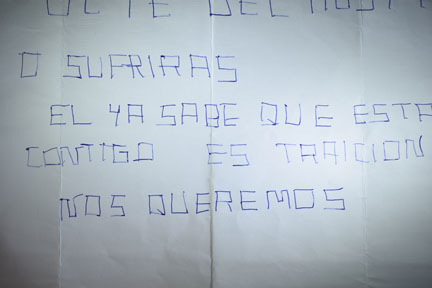 O SUFRIRAS
EL YA SABE QUE
CONTIGO ES TRAICION
NOS QUEREMOS